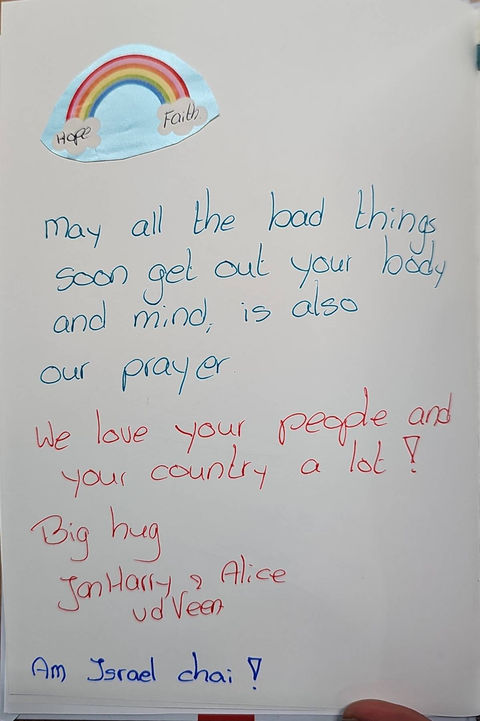 Hope
Faith
May all the bad things
soon get out your body
and mind, is also
our prayer.
We love your people and
your country a lot!
Big hug
JanHarry & Alice
vd Veen
Am Israel chai!